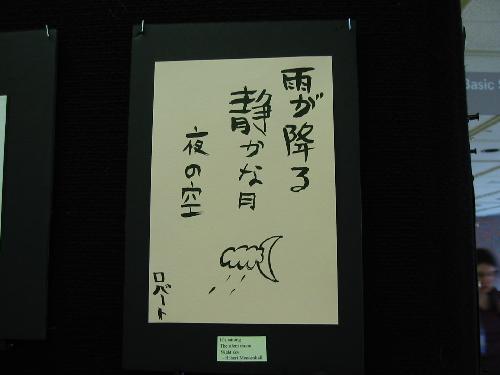 雨が降る
静かな月
夜の空
ロバート
It's raining
The silent moon
Night sky
Basic